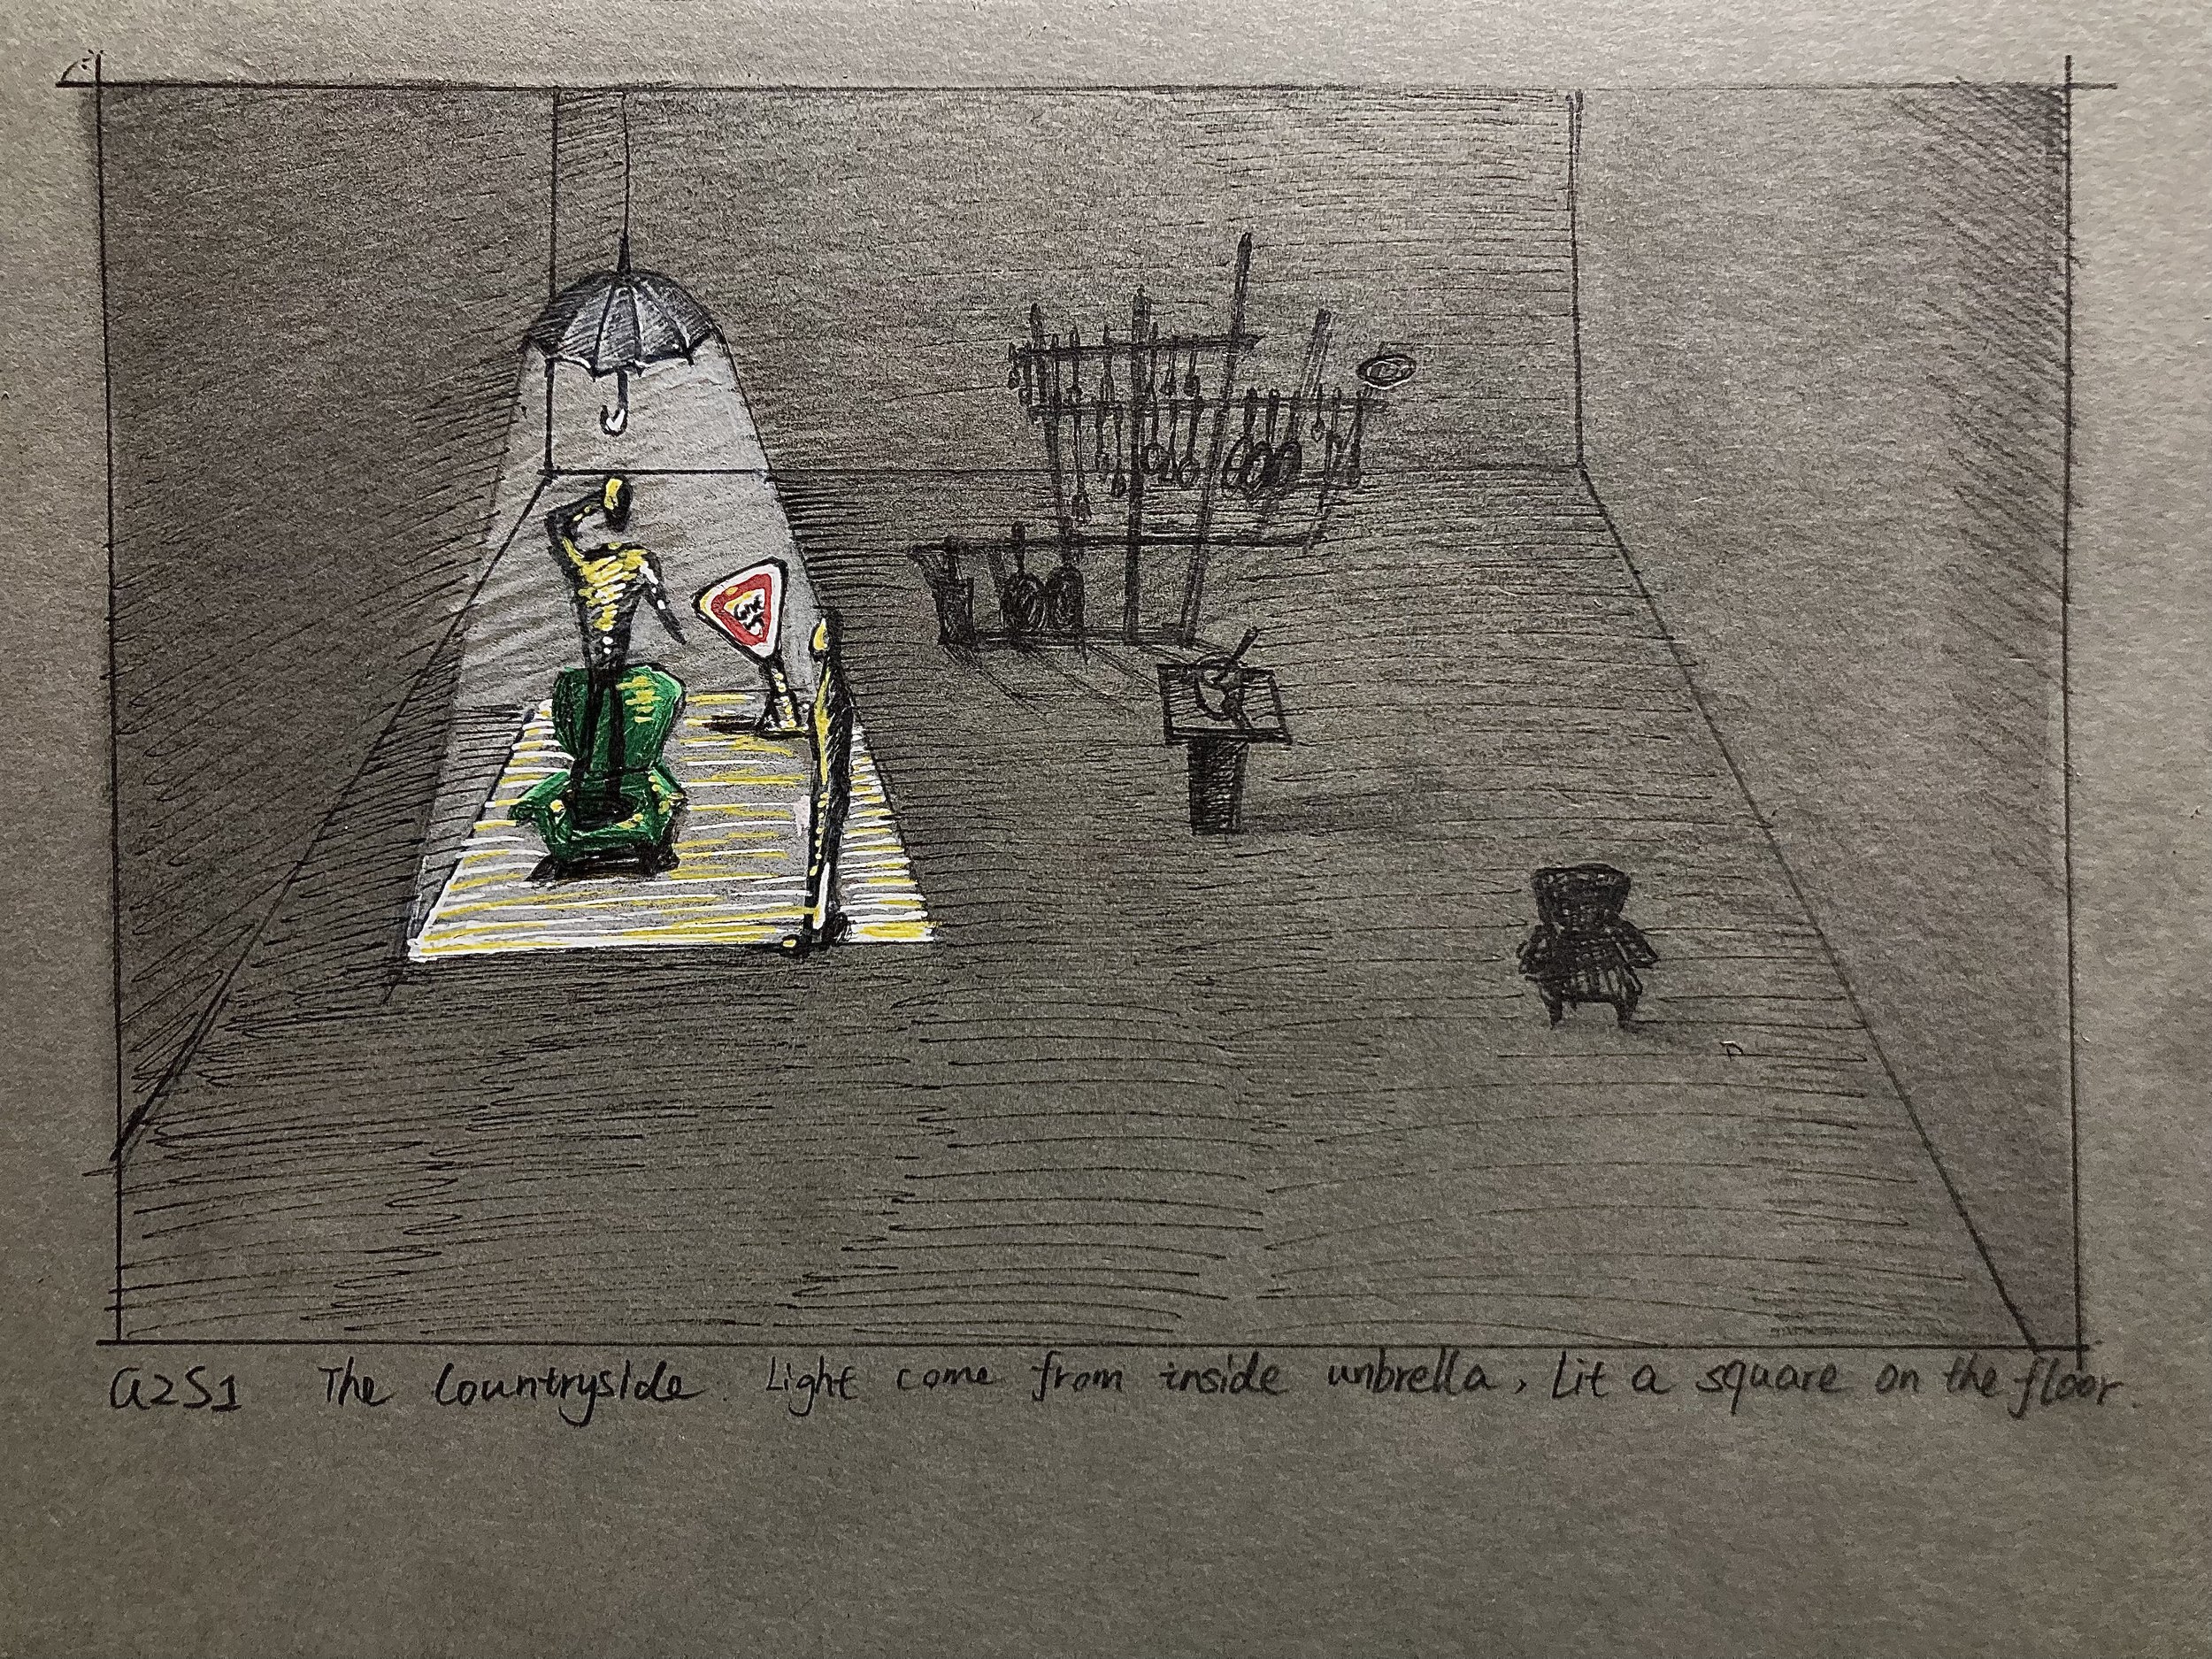 GIVE
A2S1 The Countryside. Light come from inside unbrella, Lit a square on the floor.